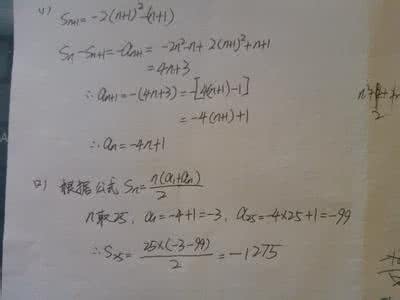 (1) Sn+1=-2(n+1)²-(n+1)
Sn-Sn+1=-an+1=-2n²-n+2(n+1)²+n+1
=4n+3
∴an+1=-(4n+3)=-[4(n+1)-1]
=-4(n+1)+1
∴an=-4n+1
(2) 根据公式 Sn=n(a1+an)/2
n取25, a1=-4+1=-3, a25=-4×25+1=-99
∴S25=25×(-3-99)/2=-1275